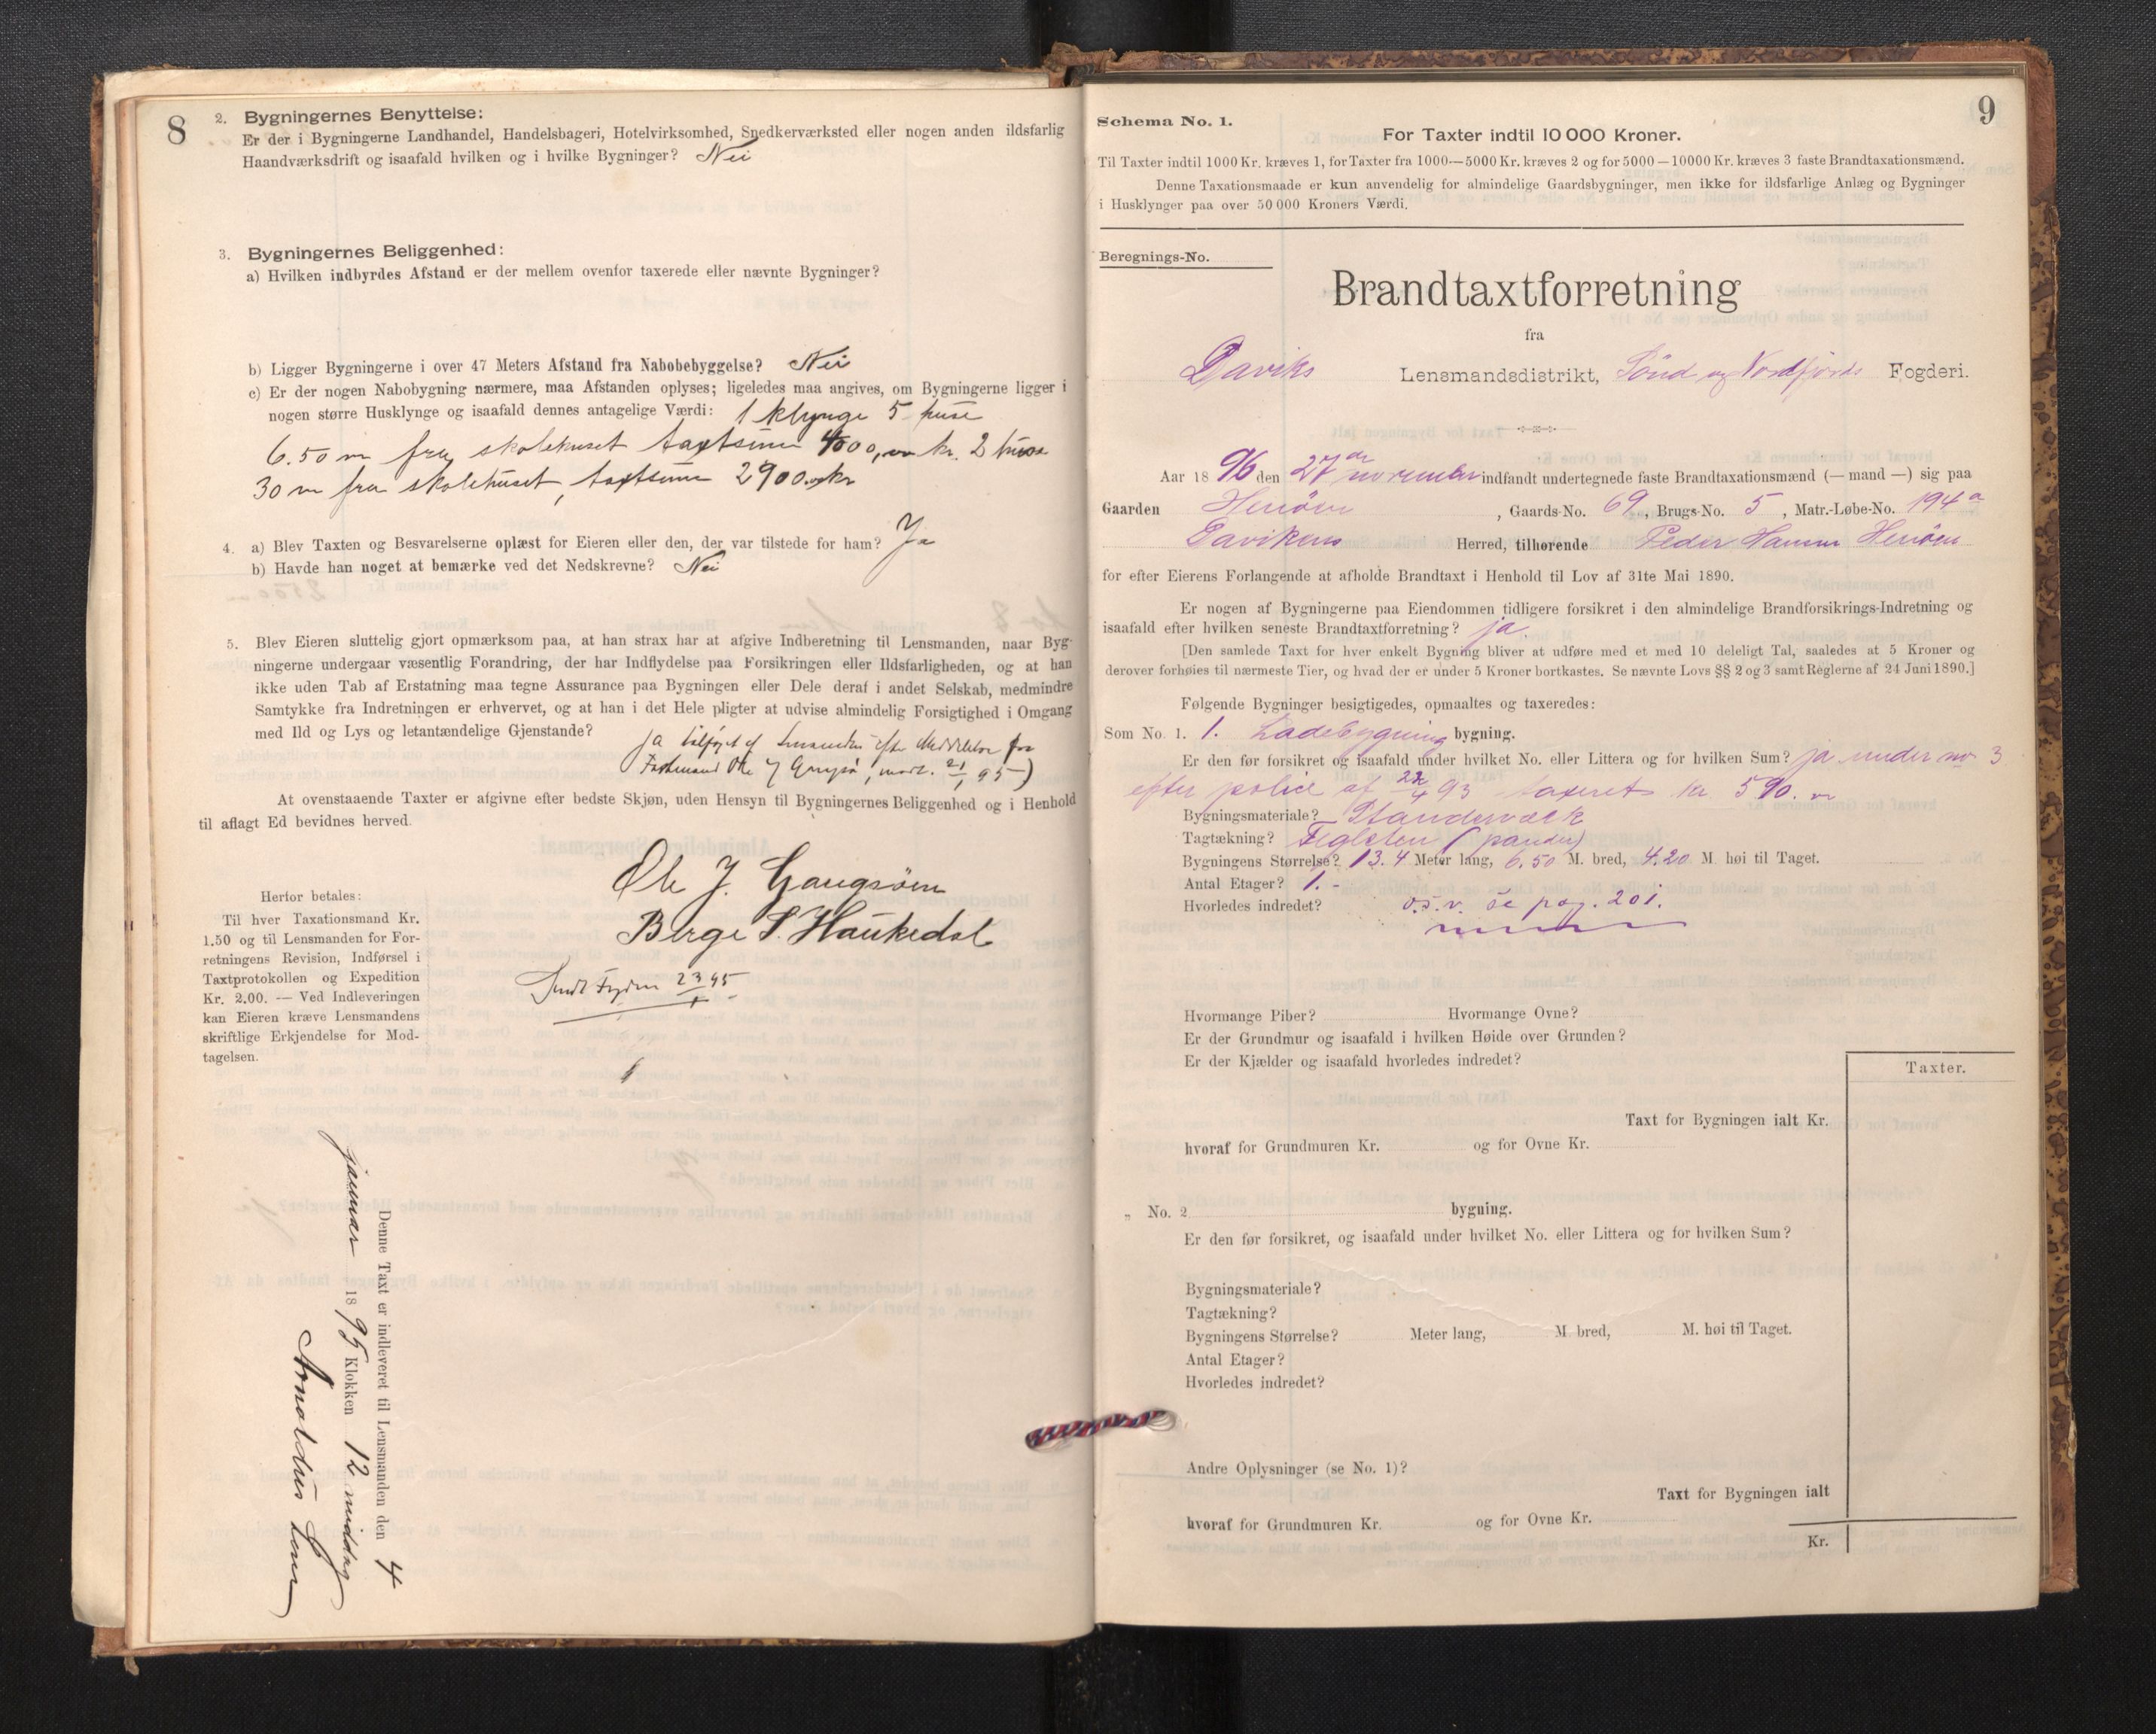 8
2. Bygningernes Benyttelse:
Er der i Bygningerne Landhandel, Handelsbageri, Hotelvirksomhed, Snedkerværksted eller nogen anden ildsfarlig
Haandværksdrift og isaafald hvilken og i hvilke Bygninger? Nei
3. Bygningernes Beliggenhed:
a) Hvilken indbyrdes Afstand er der mellem ovenfor taxerede eller nævnte Bygninger?
b) Ligger Bygningerne i over 47 Meters Afstand fra Nabobebyggelse? Nei
c) Er der nogen Nabobygning nærmere, maa Afstanden oplyses; ligeledes maa angives, om Bygningerne ligger i
nogen større Husklynge og isaafald dennes antagelige Værdi: 1 klynge 5 huse
6.50 m fra skolehuset taxtsum 4000, kr. 2 huse
30 m fra skolehuset, taxtsum 2900 kr
4. a) Blev Taxten og Besvarelserne oplæst for Eieren eller den, der var tilstede for ham? Ja
b) Havde han noget at bemærke ved det Nedskrevne? Nei
5. Blev Eieren sluttelig gjort opmærksom paa, at han strax har at afgive Indberetning til Lensmanden, naar Byg-
ningerne undergaar væsentlig Forandring, der har Indflydelse paa Forsikringen eller Ildsfarligheden, og at han
ikke uden Tab af Erstatning maa tegne Assurance paa Bygningen eller Dele deraf i andet Selskab, medmindre
Samtykke fra Indretningen er erhvervet, og at han i det Hele pligter at udvise almindelig Forsigtighed i Omgang
med Ild og Lys og letantændelige Gjenstande?
ja tilføjet af Lensmanden efter Meddelelse fra
Ole J , modt. 21/1 95)
At ovenstaaende Taxter er afgivne efter bedste Skjøn, uden Hensyn til Bygningernes Beliggenhed og i Henhold
til aflagt Ed bevidnes herved.
Ole J. Gangsöen
Berge S. Haukedal
Herfor betales:
Til hver Taxationsmand Kr.
1.50 og til Lensmanden for For-
retningens Revision, Indførsel i
Taxtprotokollen og Expedition
Kr. 2.00. — Ved Indleveringen
kan Eieren kræve Lensmandens
skriftlige Erkjendelse for Mod-
tagelsen.
Sendt 23/1 95
Denne Taxt er indleveret til Lensmanden den 4
januar 1895 Klokken 12 middag
Arnoldus
9
Schema No. 1.
For Taxter indtil 10 000 Kroner.
Til Taxter indtil 1000 Kr. kræves 1, for Taxter fra 1000—5000 Kr. kræves 2 og for 5000—10000 Kr. kræves 3 faste Brandtaxationsmænd.
Denne Taxationsmaade er kun anvendelig for almindelige Gaardsbygninger, men ikke for ildsfarlige Anlæg og Bygninger
i Husklynger paa over 50 000 Kroners Værdi.
Beregnings-No.
Brandtaxtforretning
fra
Daviks Lensmandsdistrikt, Sönd og Nordfjords Fogderi.
Aar 1896 den 27de november indfandt undertegnede faste Brandtaxationsmænd (— mand —) sig paa
Gaarden Hennöen, Gaards-No. 69, Brugs-No. 5, Matr.-Løbe-No. 194a
Davikens Herred, tilhørende Peder Hansen Hennöen
for efter Eierens Forlangende at afholde Brandtaxt i Henhold til Lov af 31te Mai 1890.
Er nogen af Bygningerne paa Eiendommen tidligere forsikret i den almindelige Brandforsikrings-Indretning og
isaafald efter hvilken seneste Brandtaxtforretning? ja.
[Den samlede Taxt for hver enkelt Bygning bliver at udføre med et med 10 deleligt Tal, saaledes at 5 Kroner og
derover forhøies til nærmeste Tier, og hvad der er under 5 Kroner bortkastes. Se nævnte Lovs §§ 2 og 3 samt Reglerne af 24 Juni 1890.]
Følgende Bygninger besigtigedes, opmaaltes og taxeredes:
Som No. 1. 1. Ladebygning bygning.
Er den før forsikret og isaafald under hvilket No. eller Littera og for hvilken Sum? ja under no 3
efter police af 22/4 93 taxeret kr 590.
Bygningsmateriale? Standervæk
Tagtækning? Teglsten (pander)
Bygningens Størrelse? 13.4 Meter lang, 6.50 M. bred, 4.20 M. høi til Taget.
Antal Etager? 1.-
Hvorledes indredet? o.s.v. se pag. 201.
Hvormange Piber? Hvormange Ovne?
Er der Grundmur og isaafald i hvilken Høide over Grunden?
Er der Kjælder og isaafald hvorledes indredet?
Taxter.
Taxt for Bygningen ialt Kr.
hvoraf for Grundmuren Kr. og for Ovne Kr.
„ No. 2 bygning.
Er den før forsikret, og isaafald under hvilket No. eller Littera og for hvilken Sum?
Bygningsmateriale?
Tagtækning?
Bygningens Størrelse? Meter lang, M. bred, M. høi til Taget.
Antal Etager?
Hvorledes indredet?
Andre Oplysninger (se No. 1)?
Taxt for Bygningen ialt
hvoraf for Grundmuren Kr. og for Ovne Kr.
Kr.